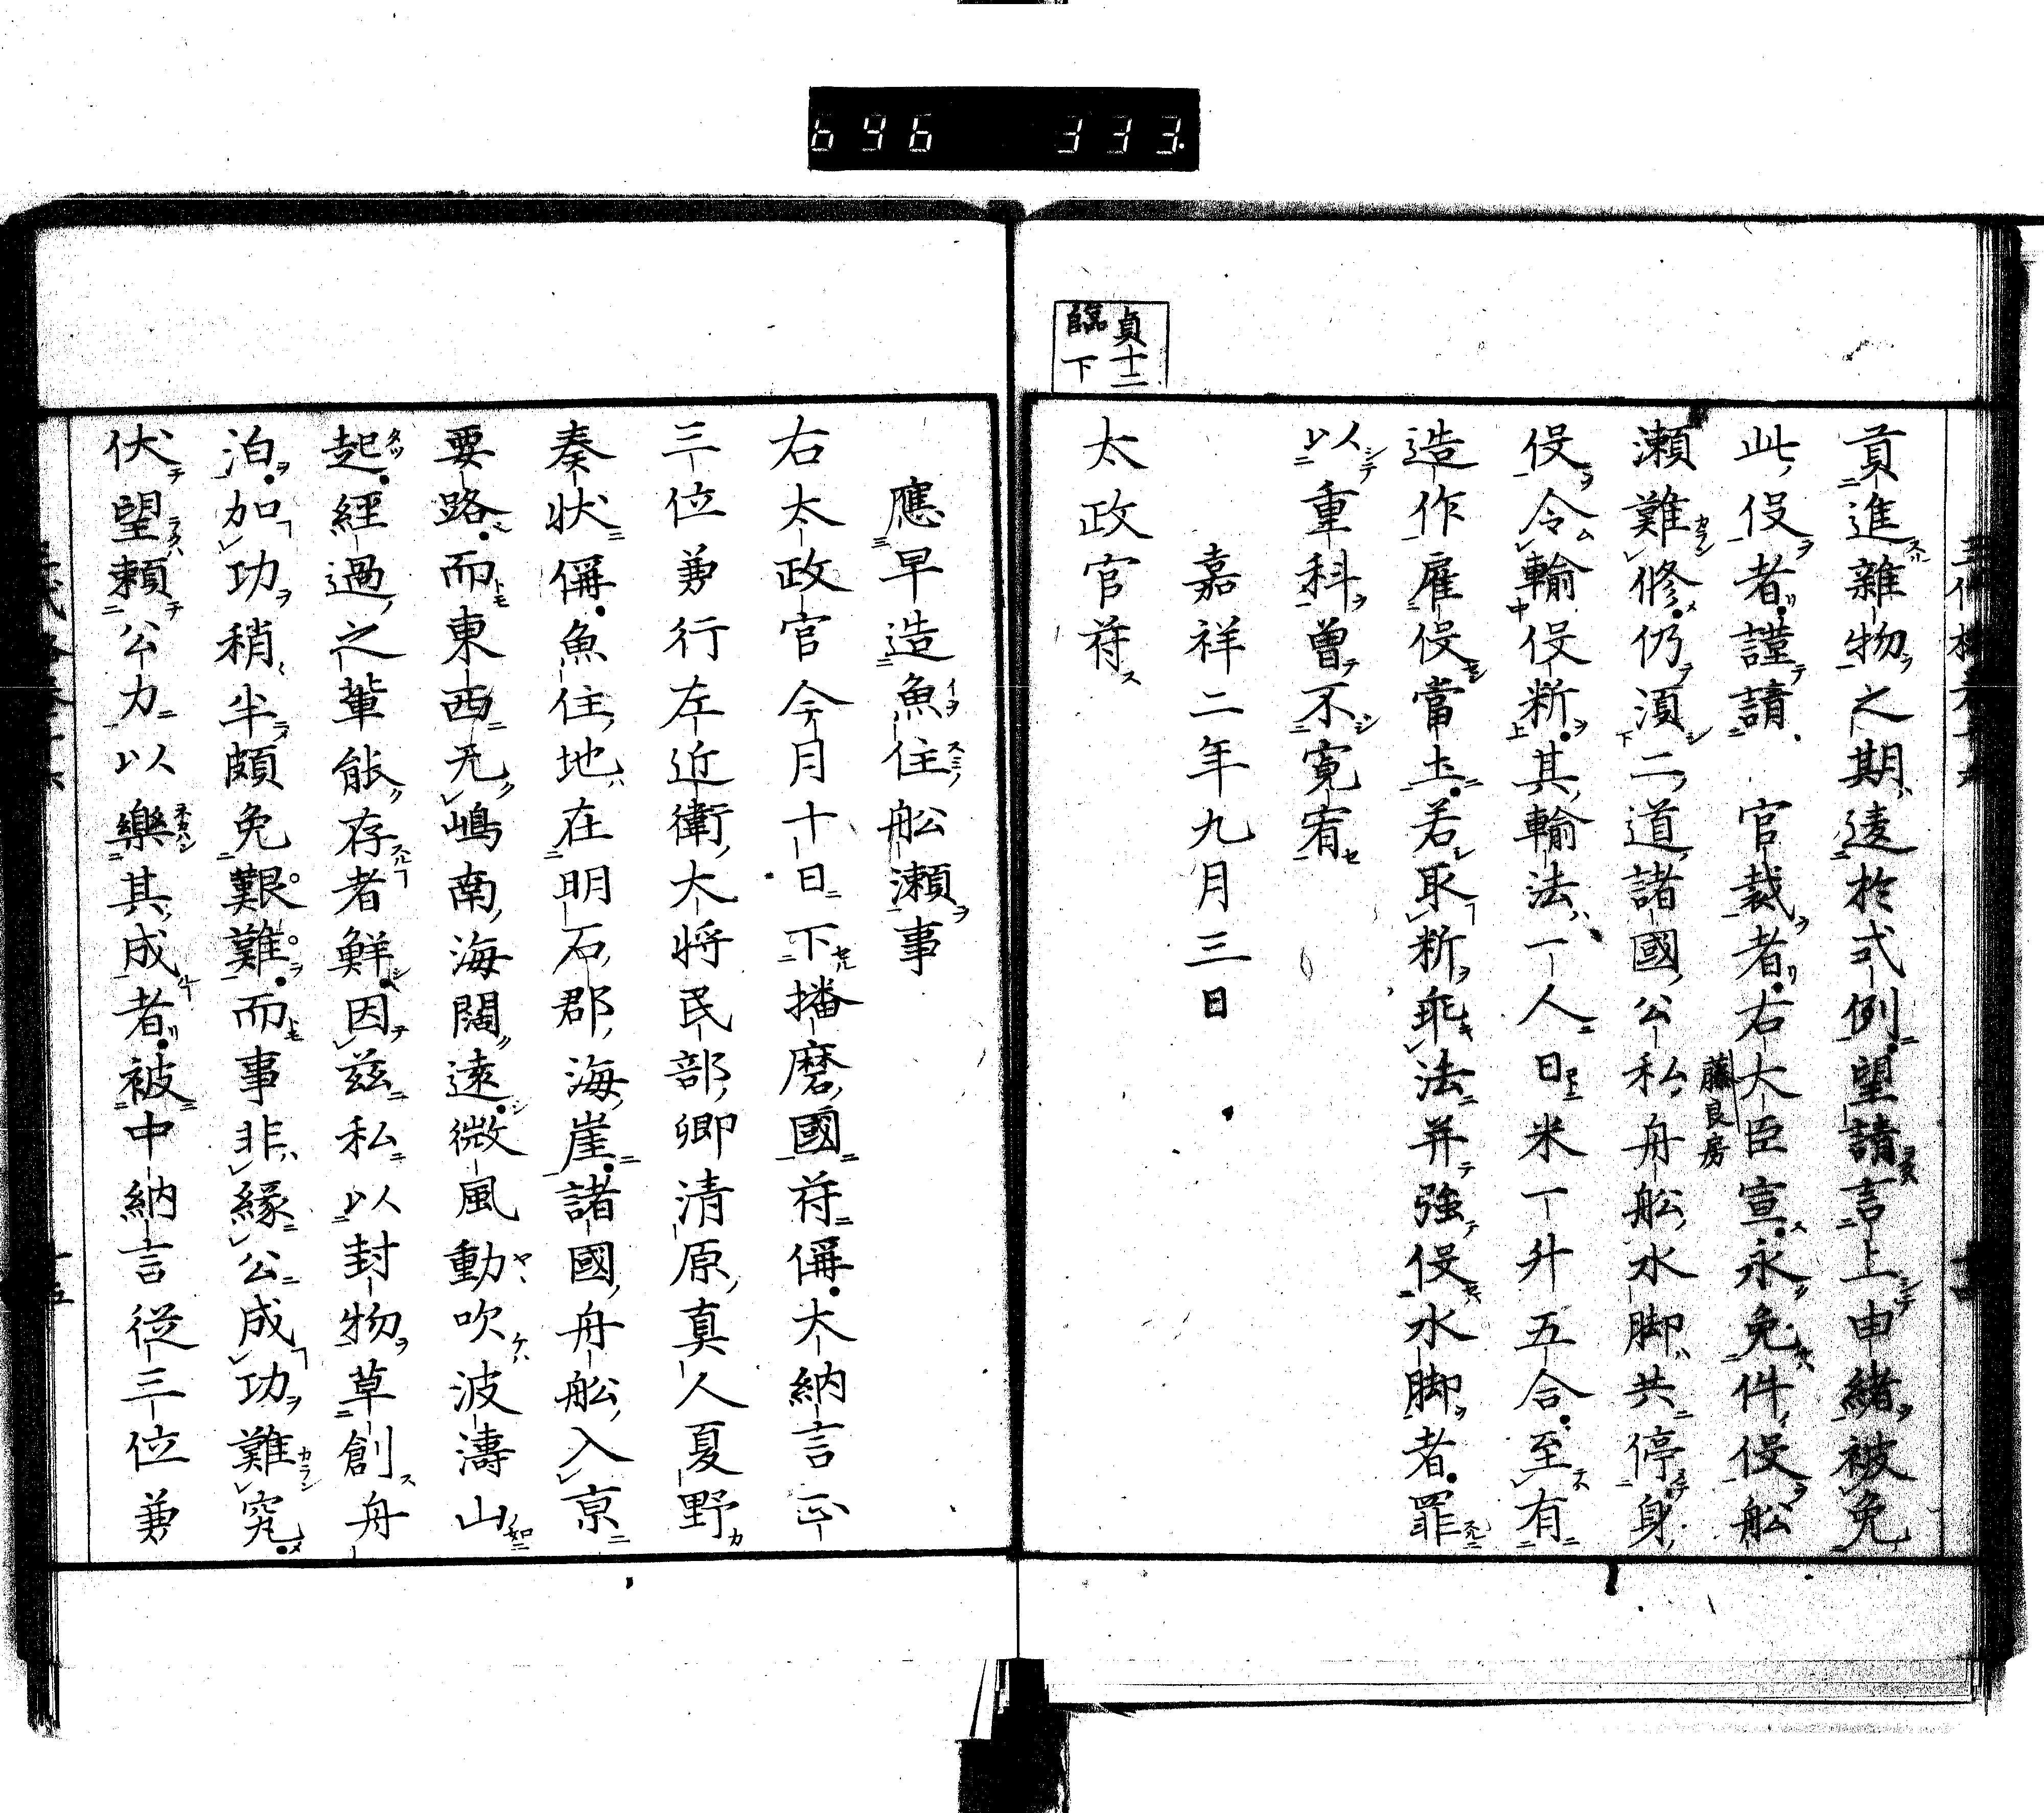 646 333
貢進雜物之期違於式例望請言上申緒被免
此役者謹請官裁者右大臣宣永免件役船
藤良房
瀬難修仍須二道諸國公私舟舩水脚共停身
役令輸役新其輸法一人日米一升五合至有
造作雇役當土若取新乖法并強役水脚者罪
以重科曾不寛宥
嘉祥二年九月三日
貞十二
臨下
太政官符
應早造魚住舩瀬事
右太政官今月十日下播磨國符偁大納言正
三位兼行左近衛大将民部卿清原真人夏野
奏状偁魚住地在明石郡海崖諸國舟舩入京
要路而東西无嶋南海闊遠微風動吹波濤山
起經過之輩能存者鮮因茲私以封物草創舟
泊加功稍半頗免艱難而事非緣公成功難究
伏望賴公力以樂其成者被中納言從三位兼